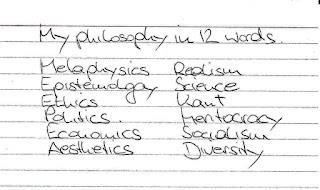 My philosophy in 12 words.
Metaphysics Realism
Epistemology Science
Ethics Kant
Politics. Meritocracy
Economics Socialism
Aesthetics Diversity